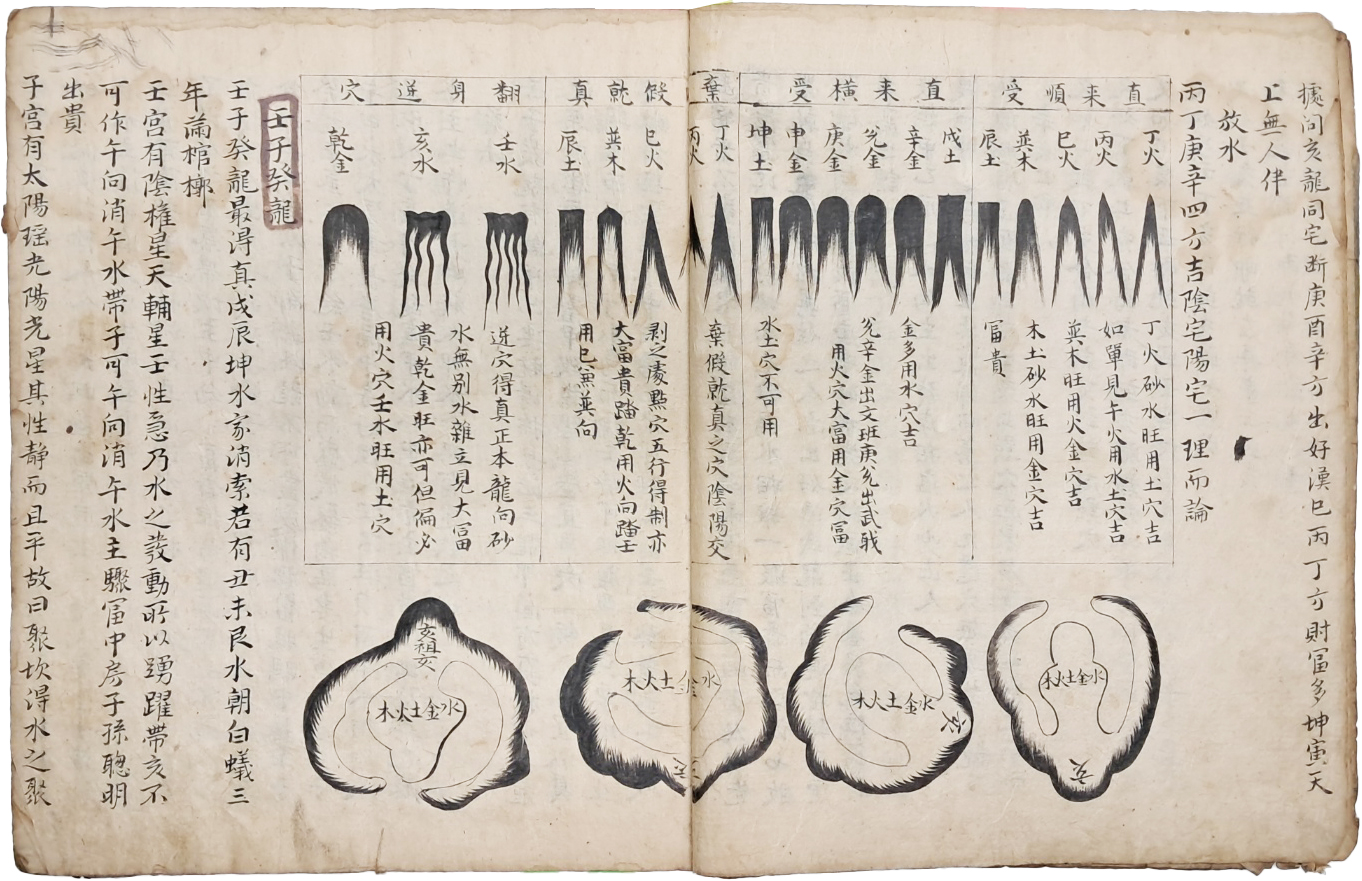 據问亥龍同宅断庚酉辛方出好漢巳丙丁方財冨多坤寅天
上無人伴
放水
丙丁庚辛四方吉陰宅陽宅一理而論
直来順受
丁火
丙火
巳火
巽木
辰土
丁火砂水旺用土穴吉
如單見午火用水土穴吉
巽木旺用火金穴吉
木土砂水旺用金穴吉
冨貴
直来横受
戍土
辛金
兊金
庚金
申金
坤土
金多用水穴吉
兊辛金出文班庚兊出武戰
用火穴大冨用金穴冨
水土穴不可用
棄假乾真
丁火
丙火
巳火
巽木
辰土
棄假乾真之穴陰陽交
剥之處點穴五行得制亦
大富貴踏乾用火向踏壬
用巳兼巽向
翻身逆穴
壬水
亥水
乾金
逆穴得真正本龍向砂
水無别水雜立見大冨
貴乾金旺亦可但偏必
用火穴壬水旺用土穴
水金土火木
亥
水金土火木
亥
水金土火木
亥
亥祖亥
水金土火木
壬子癸龍
壬子癸龍最淂真戍辰坤水家消索若有丑未艮水朝白蟻三
年滿棺槨
壬宫有陰權星天輔星壬性急乃水之發動所以踴躍帶亥不
可作午向消午水帶子可午向消午水主驟冨中房子孫聰明
出貴
子宫有太陽瑶光陽光星其性静而且平故曰聚坎淂水之聚